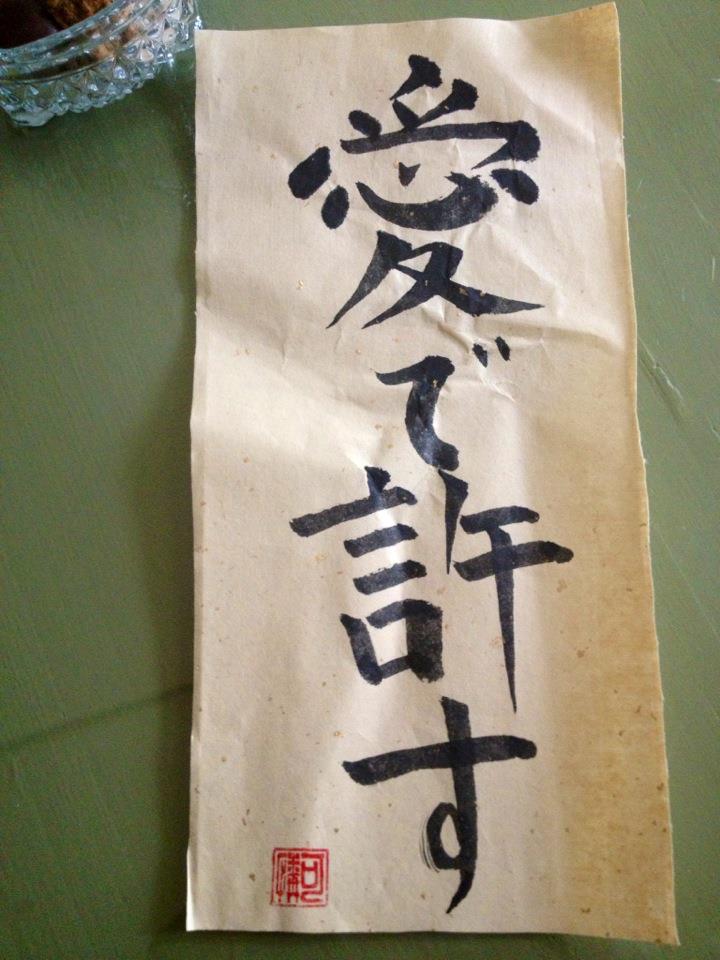 愛で許す